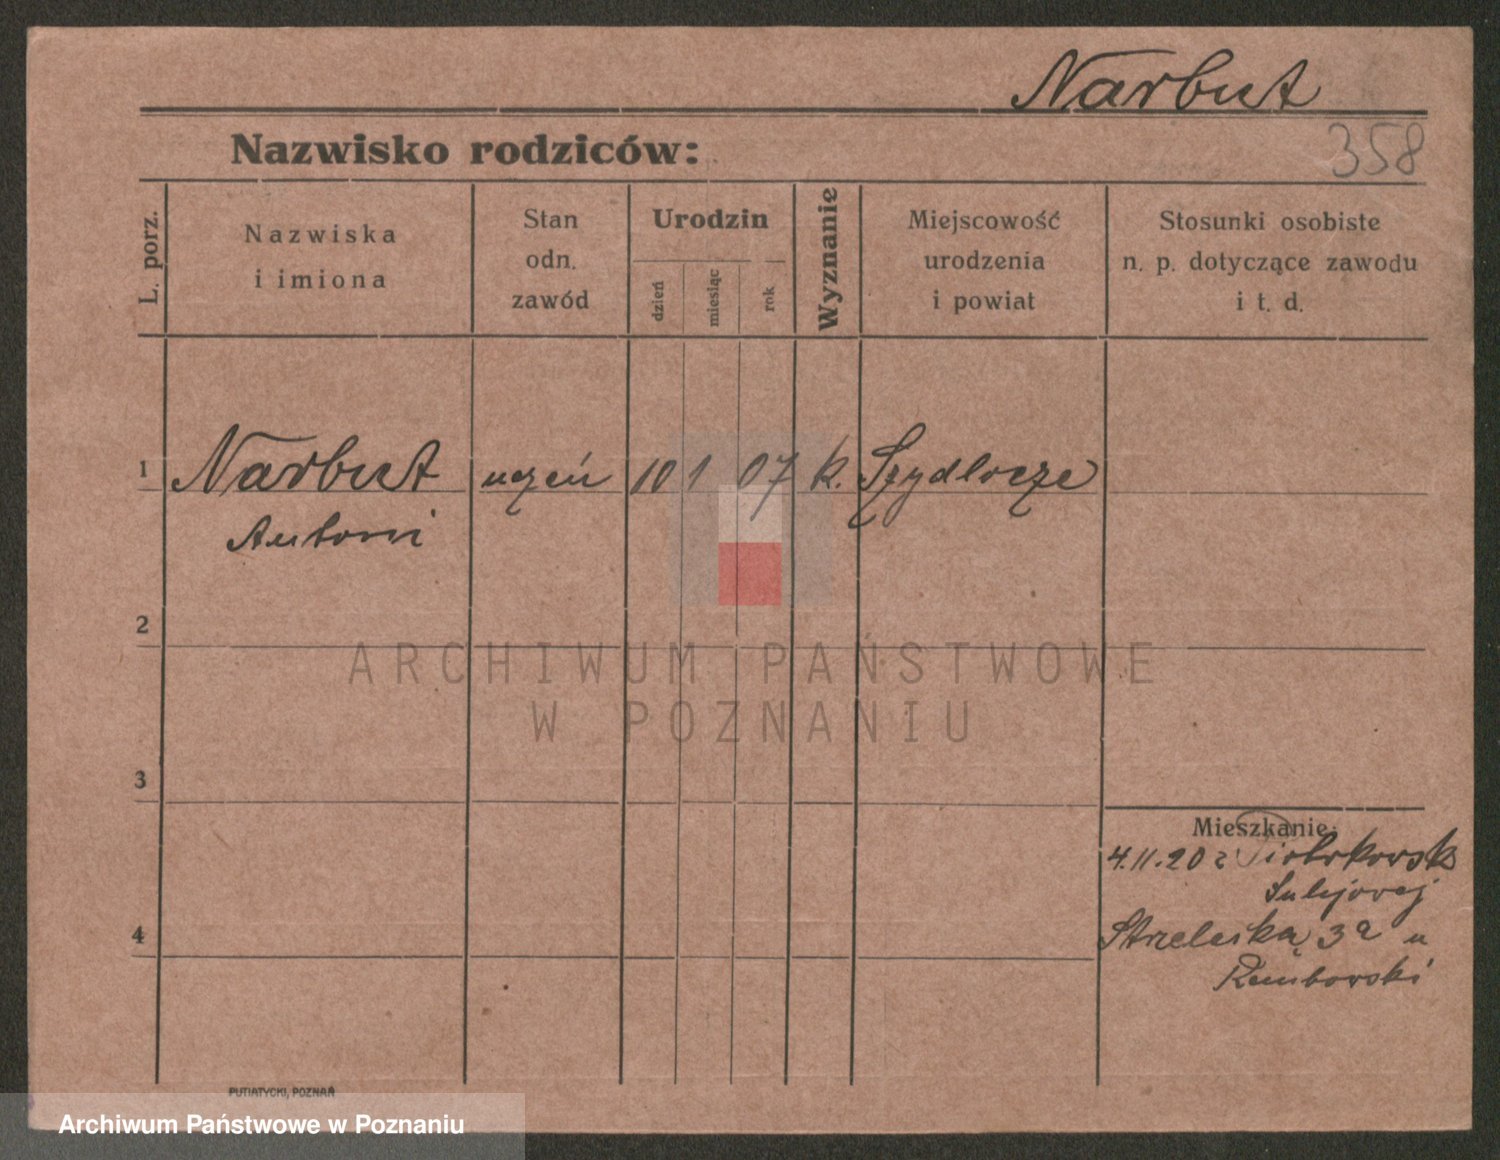 Narbut
358
Nazwisko rodziców:
L. porz.
Nazwiska
i imiona
Stan
odn.
zawód
Urodzin
dzień
miesiąc
rok
Wyznanie
Miejscowość
urodzenia
i powiat
Stosunki osobiste
n. p. dotyczące zawodu
i t. d.
1 Narbut uczeń 10 1 07 k.
Antoni
2
ARCHIWUM PAŃSTWOWE
W POZNANIU
3
Mieszkanie:
4.11.20 z
4 Strzelecka 3a u
PUTIATYCKI, POZNAŃ
Archiwum Państwowe w Poznaniu